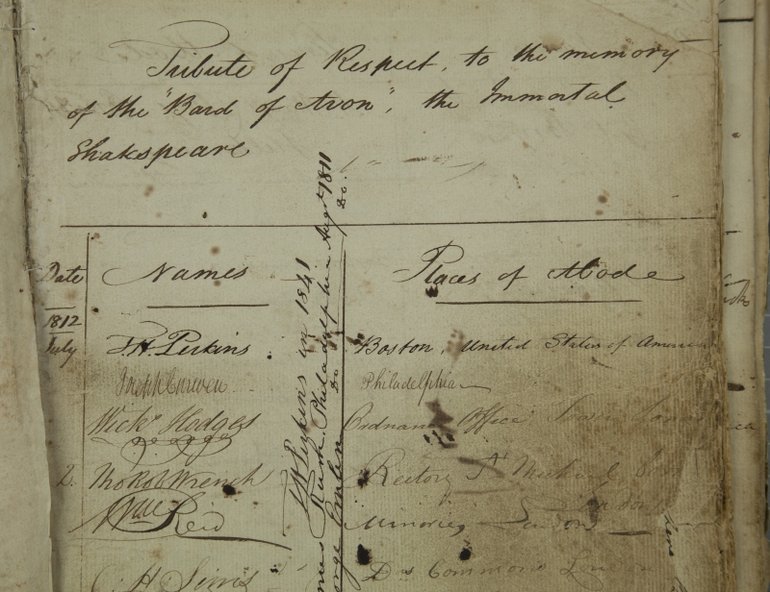 Tribute of Respect, to the memory
of the "Bard of Avon", the Immortal
Shakspeare
Date Names Places of Abode
1812
July T. H. Perkins Boston, United States of America
Joseph Curwen Philadelphia
Wickm Hodges Ordnance Office
2. Thos Robt Wrench Rector St Mich
London
Wm Reid Minories London
C. H. Simis Drs Commons London
T H Perkins in 1841
James Rush Philadelphia Augt 1811
Do Do